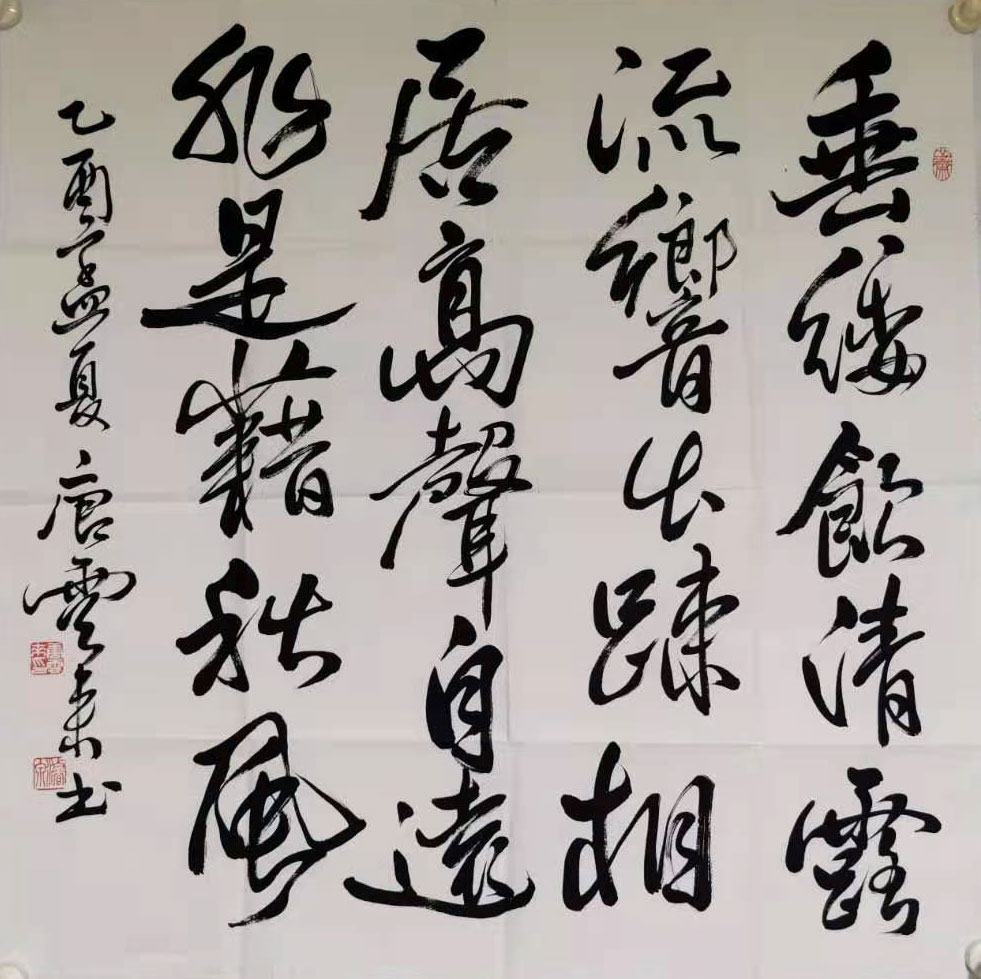 垂緌飲清露
流響出踈桐
居高聲自遠
非是藉秋風
乙酉孟夏 唐雲来书